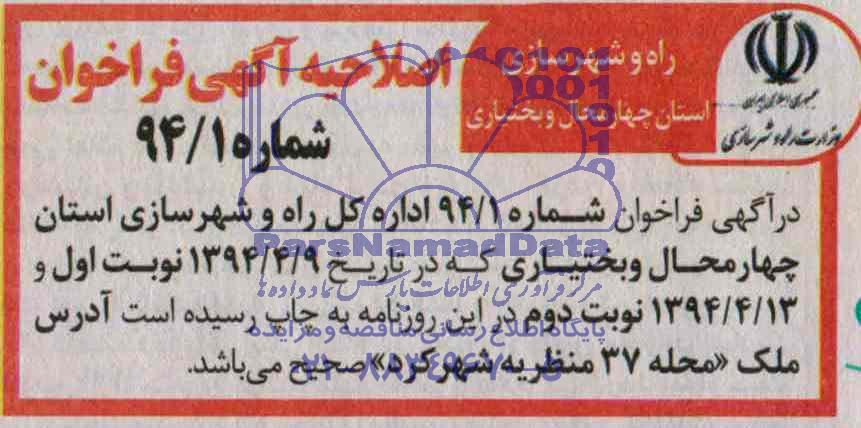 جمهوری اسلامی ایران
وزارت راه و شهرسازی
راه و شهرسازی
استان چهارمحال و بختیاری
اصلاحیه آگهی فراخوان
شماره ۹۴/۱
درآگهی فراخوان شماره ۹۴/۱ اداره کل راه و شهرسازی استان
چهارمحال وبختیاری که در تاریخ ۱۳۹۴/۴/۹ نوبت اول و
۱۳۹۴/۴/۱۳ نوبت دوم در این روزنامه به چاپ رسیده است آدرس
ملک «محله ۳۷ منظریه شهرکرد» صحیح می‌باشد.
ParsNamadData
مرکز فرآوری اطلاعات پارس نماد داده ها
پایگاه اطلاع رسانی مناقصه و مزایده